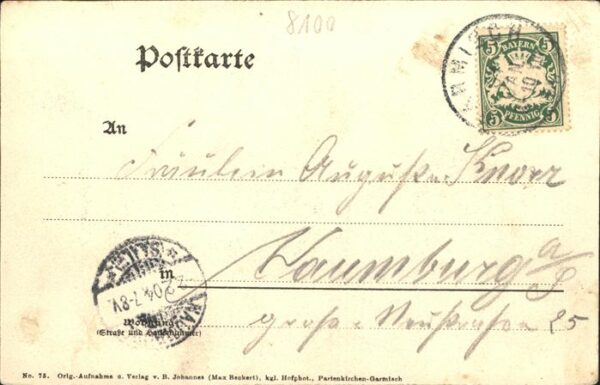 8100
Postkarte
BAYERN
5 5
5 5
PFENNIG
GARMISCH
An
Fräulein Auguste Knorr
in Naumburg a/S
2 04. 7-8V.
Wohnung
(Straße und Hausnummer)
große Neustraße 25
No. 75. Orig.-Aufnahme u. Verlag v. B. Johannes (Max Beckert), kgl. Hofphot., Partenkirchen-Garmisch